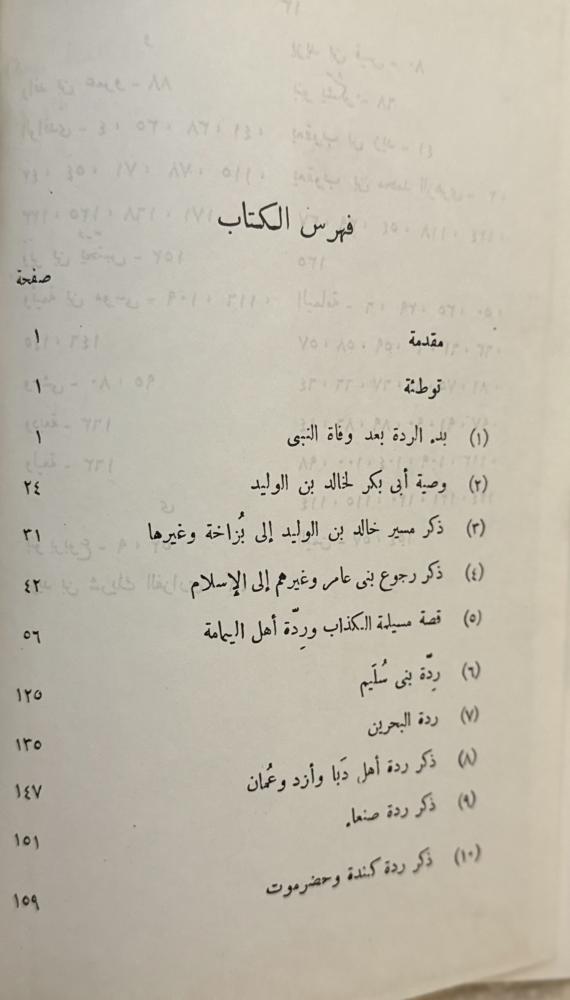 فهرس الكتاب
صفحة
مقدمة ١
توطئة ١
(١) بدء الردة بعد وفاة النبى ١
(٢) وصية أبى بكر لخالد بن الوليد ٢٤
(٣) ذكر مسير خالد بن الوليد إلى بُزاخة وغيرها ٣١
(٤) ذكر رجوع بنى عامر وغيرهم إلى الإسلام ٤٢
(٥) قصة مسيلمة الكذاب ورِدّة أهل اليمامة ٥٦
(٦) رِدّة بنى سُلَيم ١٢٥
(٧) ردة البحرين ١٣٥
(٨) ذكر ردة أهل دَبا وأزد وعُمان ١٤٧
(٩) ذكر ردة صنعاء ١٥١
(١٠) ذكر ردة كندة وحضرموت ١٥٩